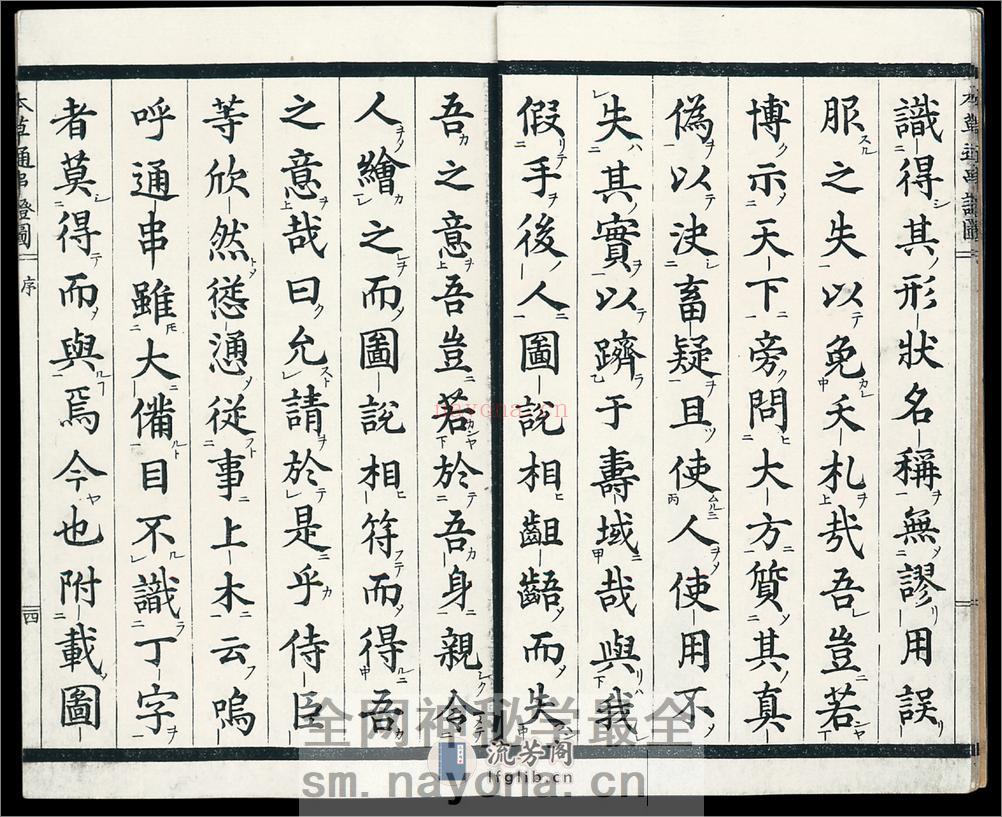 識得其形狀名稱無謬用誤
服之失以免夭札哉吾豈若
博示天下旁問大方質其真
偽以决畜疑且使人使用不
失其實以躋于壽域哉與我
假手後人圖說相齟齬而失
吾之意吾豈若於吾身親令
人繪之而圖說相符而得吾
之意哉曰允請於是乎侍臣
等欣然慫慂從事上木云嗚
呼通串雖大備目不識丁字
者莫得而與焉今也附載圖
本草通串證圖 序
四
nayona.cn
全网神秘学最全
流芳阁
lfglib.cn
sm.nayona.cn